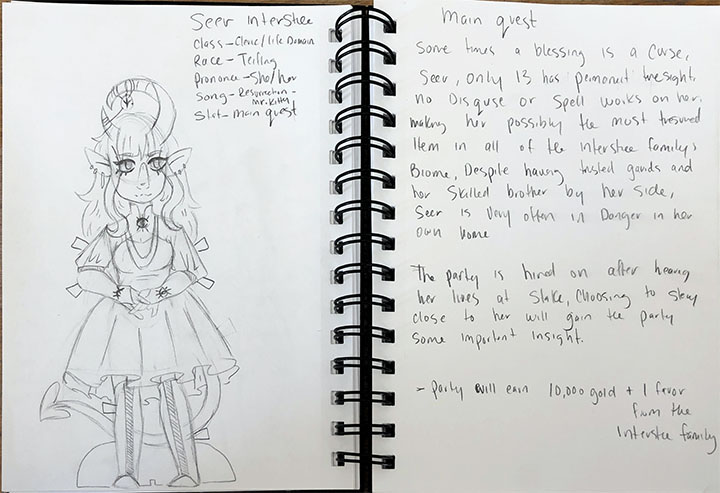 Seer Interstee
Class - Cleric/life Domain
Race - Teifling
Pronance - She/her
Song - Resurrection -
Mr.Kitty
Slot - Main quest
Main quest
Some times a blessing is a curse,
Seer, only 13 has permanent truesight,
no Disguse or Spell works on her,
making her possibly the most tresured
Item in all of the Interstee family's
Biome, Despite having trusted gaurds and
her skilled brother by her side,
Seer is Very often in Danger in her
own home
The party is hired on after hearing
her lives at Stake, Choosing to stay
close to her will gain the party
some important insight.
- party will earn 10,000 gold + 1 favor
from the
Interstee family